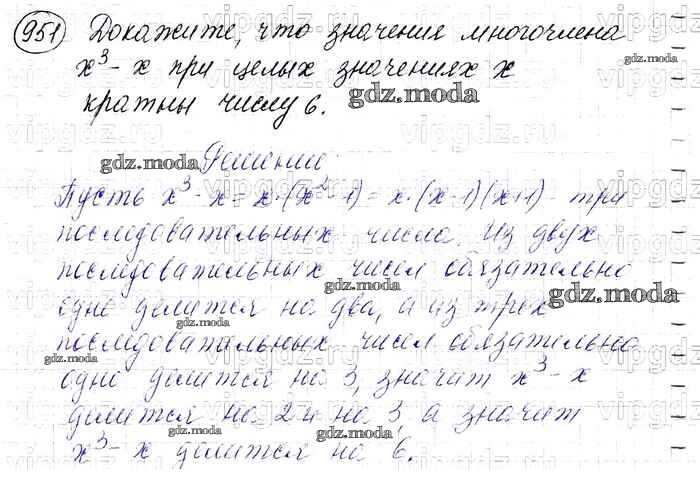 951 Докажите, что значения многочлена
x³ - x при целых значениях x
кратны числу 6.
Решение
Пусть x³ - x = x·(x² - 1) = x·(x-1)(x+1) - три
последовательных числа. Из двух
последовательных чисел обязательно
одно делится на два, а из трех
последовательных чисел обязательно
одно делится на 3, значит x³ - x
делится на 2 и на 3, а значит
x³ - x делится на 6.